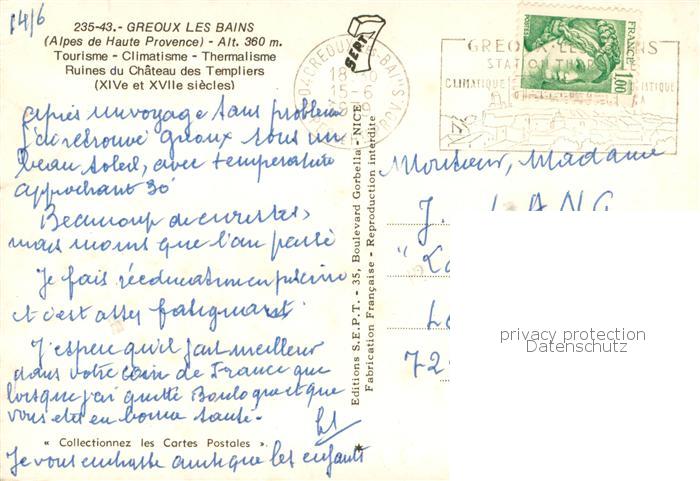 14/6
235-43.- GREOUX LES BAINS
(Alpes de Haute Provence) - Alt. 360 m.
Tourisme - Climatisme - Thermalisme
Ruines du Château des Templiers
(XIVe et XVIIe siècles)
après un voyage sans problème
j'ai retrouvé Gréoux sous un
beau soleil, avec température
approchant 30°
Beaucoup de curistes,
mais moins que l'an passé
Je fais rééducation en piscine
et c'est assez fatiguant
J'espère qu'il fait meilleur
dans votre coin de France que
lorsque j'ai quitté Boulogne et que
vous êtes en bonne santé.
« Collectionnez les Cartes Postales ».
Je vous embrasse ainsi que les enfants
Editions S.E.P.T. - 35, Boulevard Gorbella - NICE
Fabrication Française - Reproduction interdite
SEPT
GREOUX-LES-BAINS
18-30
15-6
GREOUX-LES-BAINS
STATION
CLIMATIQUE
FRANCE
1,00
Monsieur, Madame
J. LANG
72
privacy protection
Datenschutz